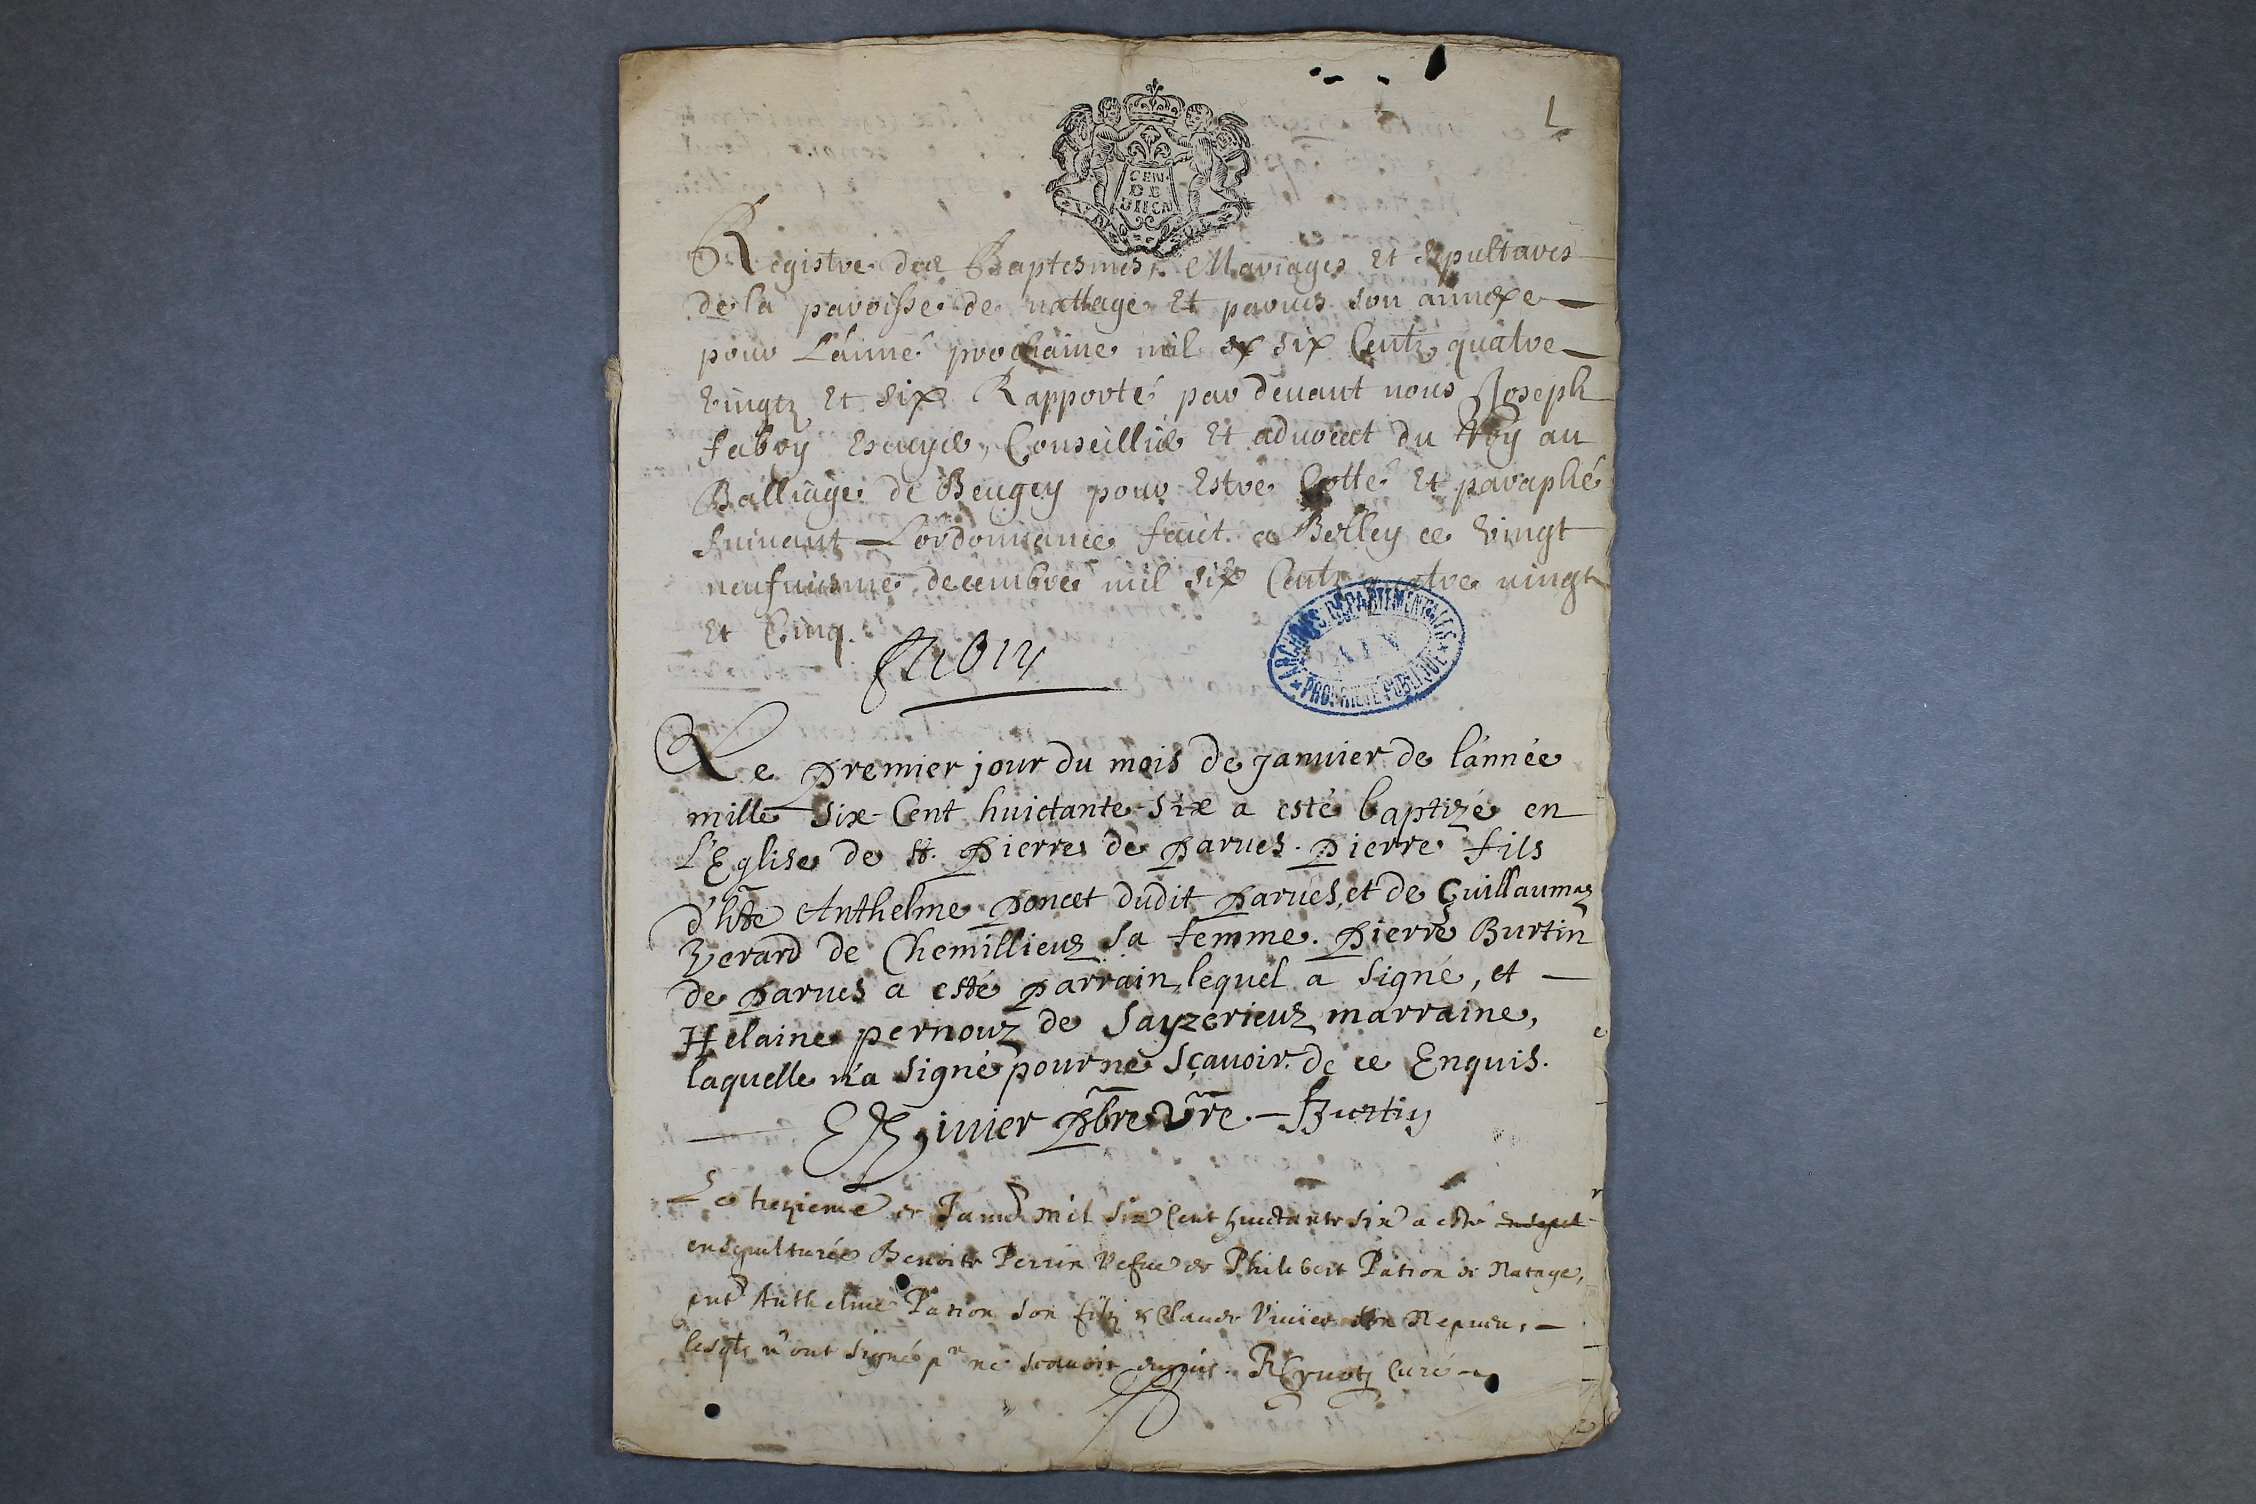 1
GEN.
DE
DIION
Registre des Baptesmes, Mariages et Sepultures
de la paroisse de nattage et parues son annexe
pour L'année prochaine mil et six Centz quatre
vingtz et six Rapporté par deuant nous Joseph
fabry Escuyer, Conseillier et aduocat du Roy au
Balliage de Beugey pour Estre Cotté et paraphé
suiuant L'ordonnance faict a Belley ce vingt
neufuiesme decembre mil six Centz quatre vingt
et Cinq.
Fabry
ARCHIVES DÉPARTEMENTALES
AIN
PROPRIÉTÉ PUBLIQUE
Le premier jour du mois de janvier de l'année
mille six-Cent huictante-six a esté baptizé en
l'Eglise de st. Pierre de Parues. Pierre fils
d'hte Anthelme Poncet dudit Parues, et de Guillaumaz
Verard de Chemillieuz sa femme. Pierre Burtin
de Parues a esté parrain, lequel a signé, et
Helaine pernouz de Sayzerieuz marraine,
laquelle n'a signé pour ne sçauoir. de ce Enquis.
Viuier pbre vre. Burtin
Le trezieme de Januier mil six Cent huictante six a esté ensepul
ensepulturée Benoite Perrin Vefue de Philibert Pation de Natage,
pnt Anthelme Pation son filz & Claude Viuier son Nepueu,
lesqls n'ont signé pr ne scauoir enquis. Reynotz Curé